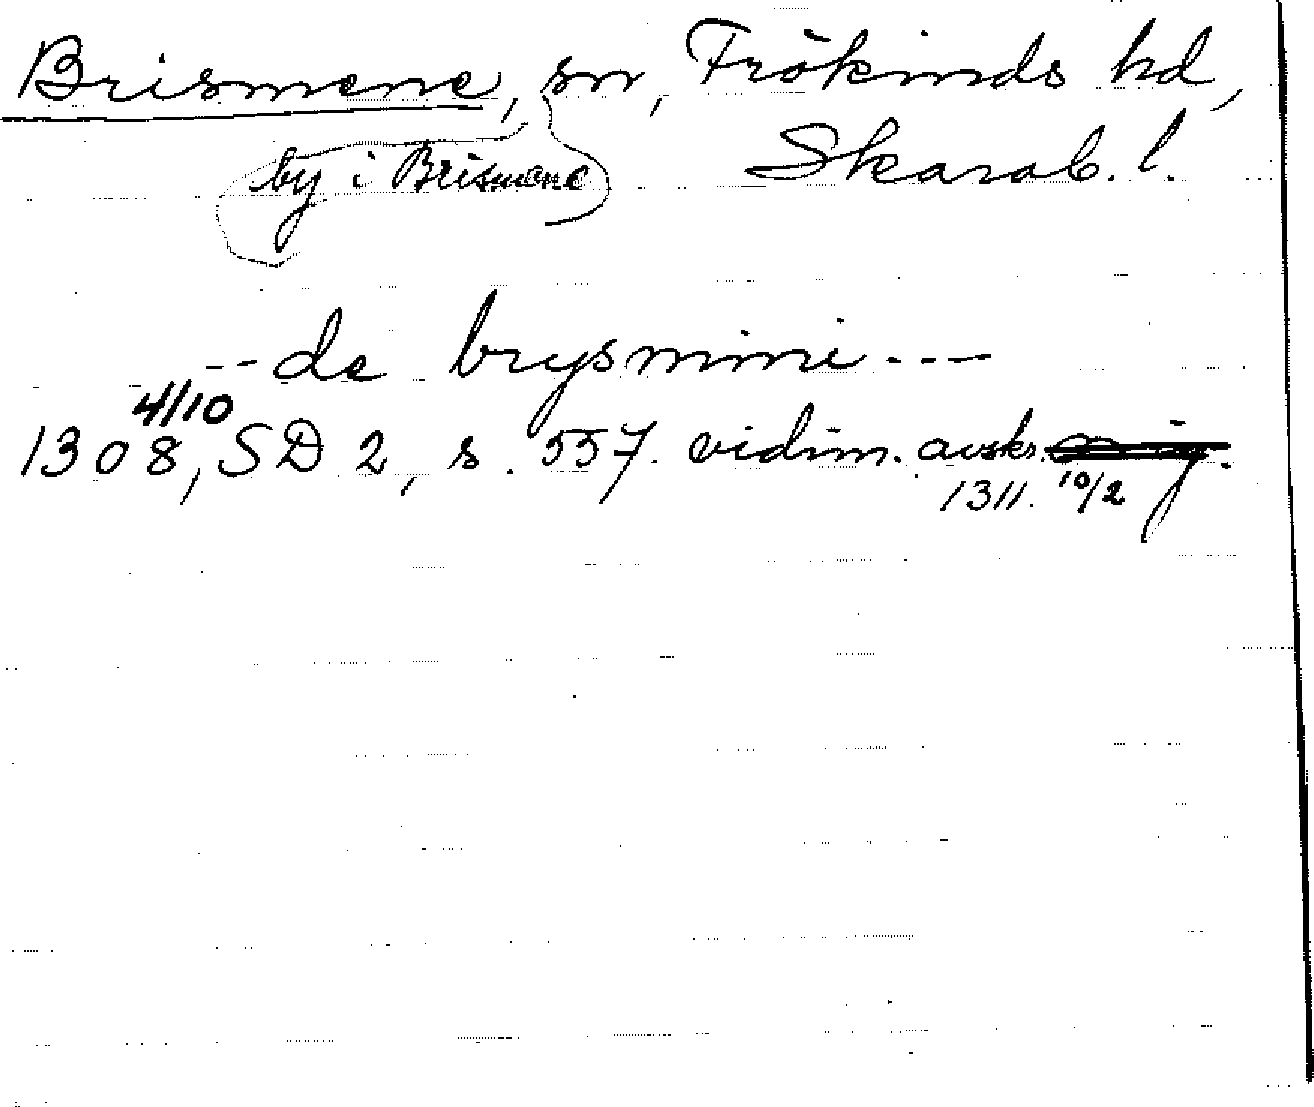 Brismene, sn, Frökinds hd,
by i Brismene Skarab. l.
-- de brysmini ---
4/10
1308, SD 2, s. 557. vidim. avskr.
1311. 10/2